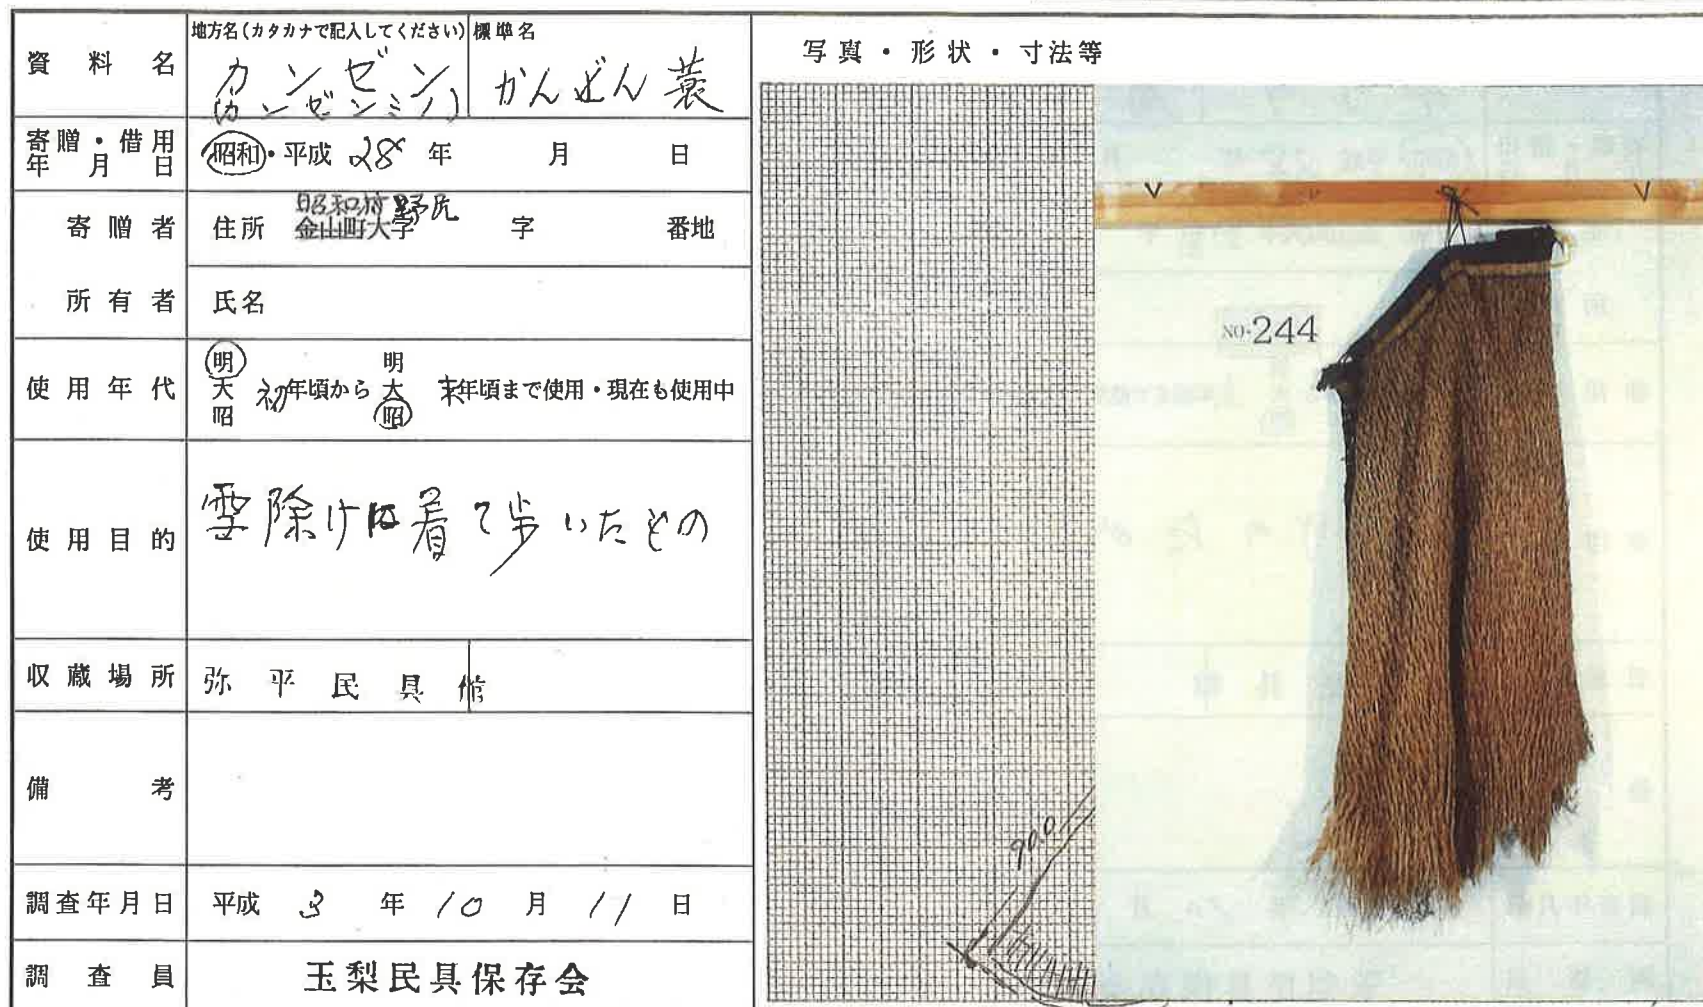 資料名
地方名(カタカナで記入してください)
カンゼン
(カンゼンミノ)
標準名
かんぜん蓑
寄贈・借用年月日
昭和・平成 28 年 月 日
寄贈者
住所 昭和村野尻
金山町大字 字 番地
所有者
氏名
使用年代
明大昭 初年頃から 明大昭 末年頃まで使用・現在も使用中
使用目的
雪除けに着て歩いたもの
収蔵場所
弥平民具館
備考
調査年月日
平成 3 年 10 月 11 日
調査員
玉梨民具保存会
写真・形状・寸法等
NO.244
90.0